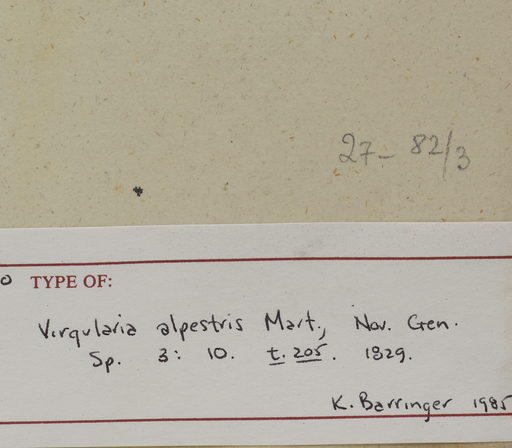 27- 82/3
TYPE OF:
Virgularia alpestris Mart., Nov. Gen.
Sp. 3: 10. t. 205. 1829.
K. Barringer 1985